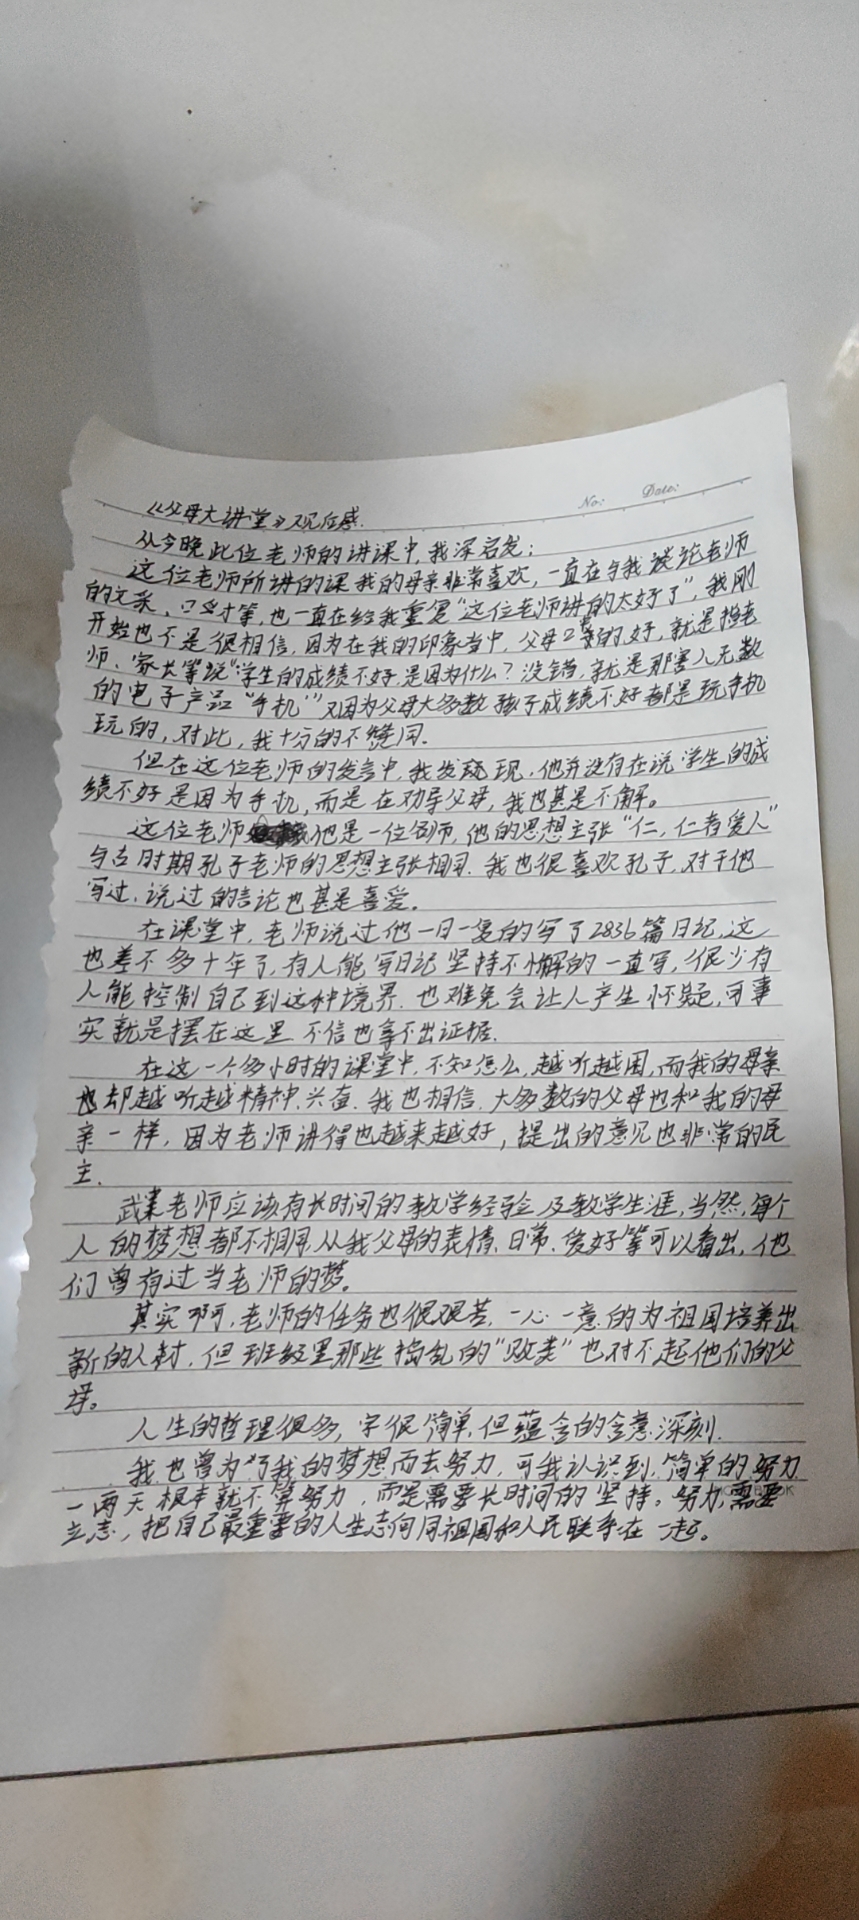 No: Date:
《父母大讲堂》观后感.
从今晚此位老师的讲课中,我深有启发:
这位老师所讲的课我的母亲非常喜欢,一直在与我谈论老师
的文采、口才等,也一直在给我重复"这位老师讲的太好了",我刚
开始也不是很相信,因为在我的印象当中,父母的好,就是指老
师、家长等说"学生的成绩不好是因为什么?没错,就是那害人无数
的电子产品"手机""又因为父母大多数孩子成绩不好都是玩手机
玩的,对此,我十分的不赞同.
但在这位老师的发言中,我发现,他并没有在说学生的成
绩不好是因为手机,而是在劝导父母,我也甚是不解。
这位老师他是一位的师,他的思想主张"仁,仁者爱人"
与古时期孔子老师的思想主张相同.我也很喜欢孔子,对于他
写过,说过的言论也甚是喜爱。
在课堂中,老师说过他一日一复的写了2836篇日记,这
也差不多十年了,有人能写日记坚持不懈的一直写,很少有
人能控制自己到这种境界.也难免会让人产生怀疑,可事
实就是摆在这里 不信也拿不出证据.
在这一个多小时的课堂中,不知怎么,越听越困,而我的母亲
也却越听越精神、兴奋.我也相信,大多数的父母也和我的母
亲一样,因为老师讲得也越来越好,提出的意见也非常的民
主.
武某老师应该有长时间的教学经验及教学生涯,当然,每个
人的梦想都不相同,从我父母的表情、日常、爱好等可以看出,他
们曾有过当老师的梦。
其实啊,老师的任务也很艰苦,一心一意的为祖国培养出
新的人材,但班级里那些捣乱的"败类"也对不起他们的父
母。
人生的哲理很多,字很简单,但蕴含的含意深刻.
我也曾为了我的梦想而去努力,可我认识到,简单的努力
一两天根本就不算努力,而是需要长时间的坚持。努力,需要
立志,把自己最重要的人生志向同祖国和人民联系在一起。